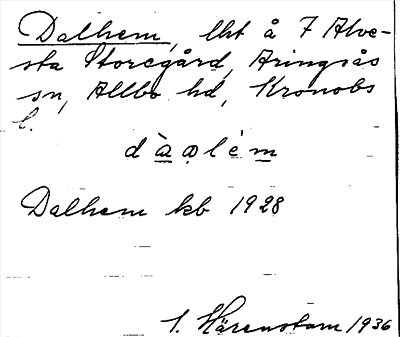 Dalhem, lht å 7 Alve-
sta Storegård, Aringsås
sn, Allbo hd, Kronobs
l.
dàalém
Dalhem kb 1928
1. Härenstam 1936